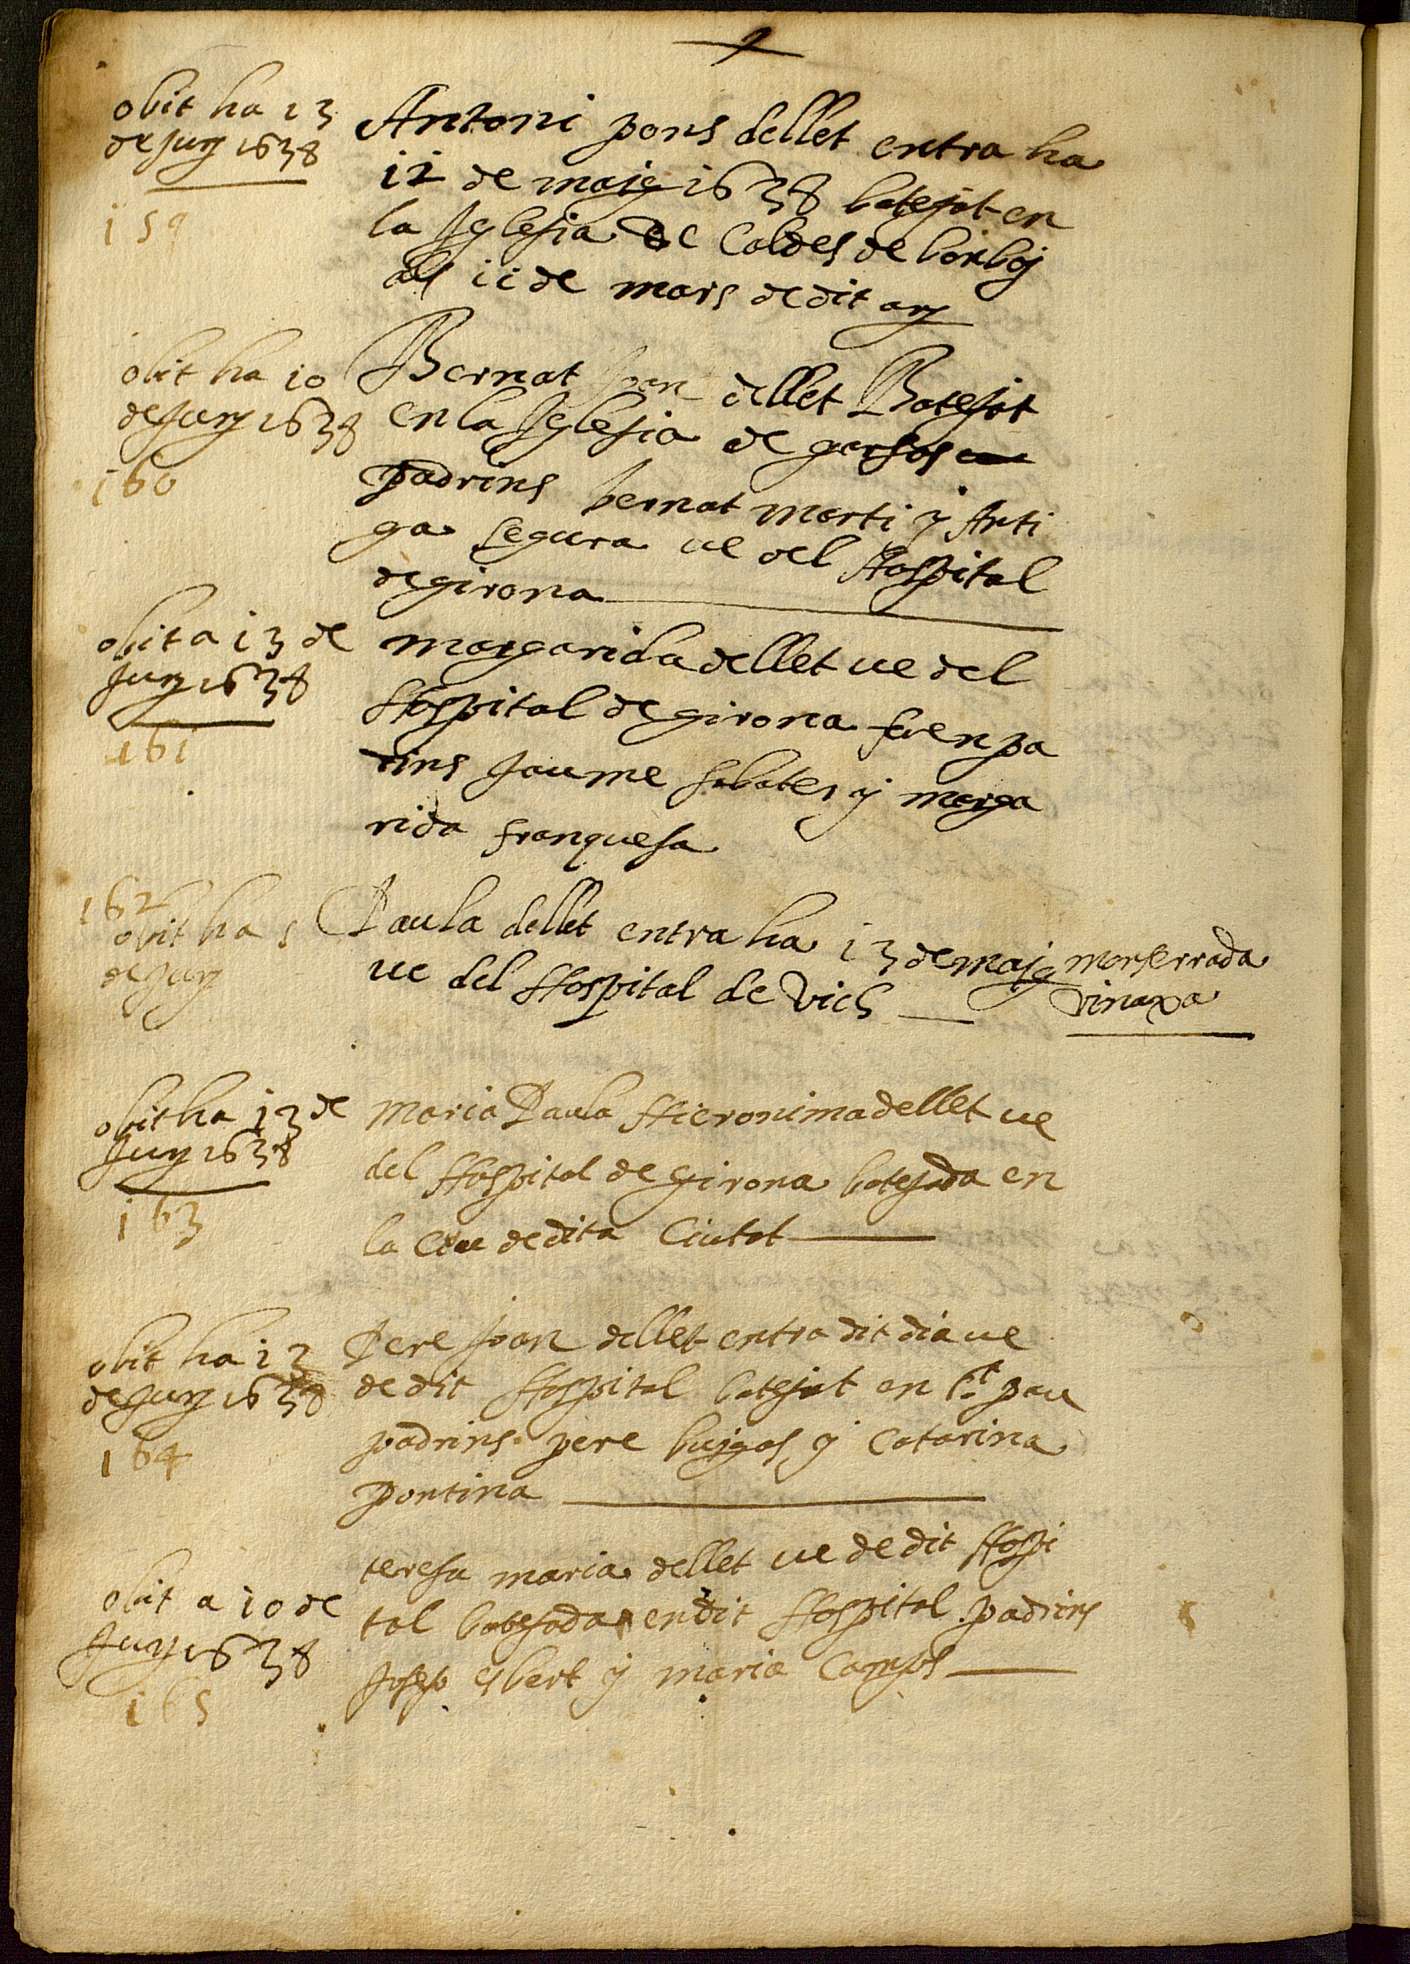 obit ha 13
de Juny 1638
159
Antoni pons dellet entra ha
12 de maig 1638 batejat en
la Iglesia de Caldes de bonboy
als 11 de mars de dit any
obit ha 10
de Juny 1638
160
Bernat Joan dellet Batejat
en la Iglesia de
padrins bernat marti y Anti
ga segura ve del Hospital
de girona
obit a 13 de
Juny 1638
161
margarida dellet ve del
Hospital de girona foren pa
drins Jaume sabater y marga
rida franquesa
162
obit ha 5
de Juny
Paula dellet entra ha 13 de maig
ve del Hospital de Vich
monserrada
vinaxa
obit ha 13 de
Juny 1638
163
Maria Paula Hieronima dellet ve
del Hospital de girona batejada en
la Ceu de dita Ciutat
obit ha 12
de Juny 1638
164
Pere Joan dellet entra dit dia ve
de dit Hospital batejat en St pau
padrins pere bujgas y Catarina
pontina
obit a 10 de
Juny 1638
165
teresa maria dellet ve de dit Hospi
tal batejada en dit Hospital padrins
Josep esbert y maria Camps